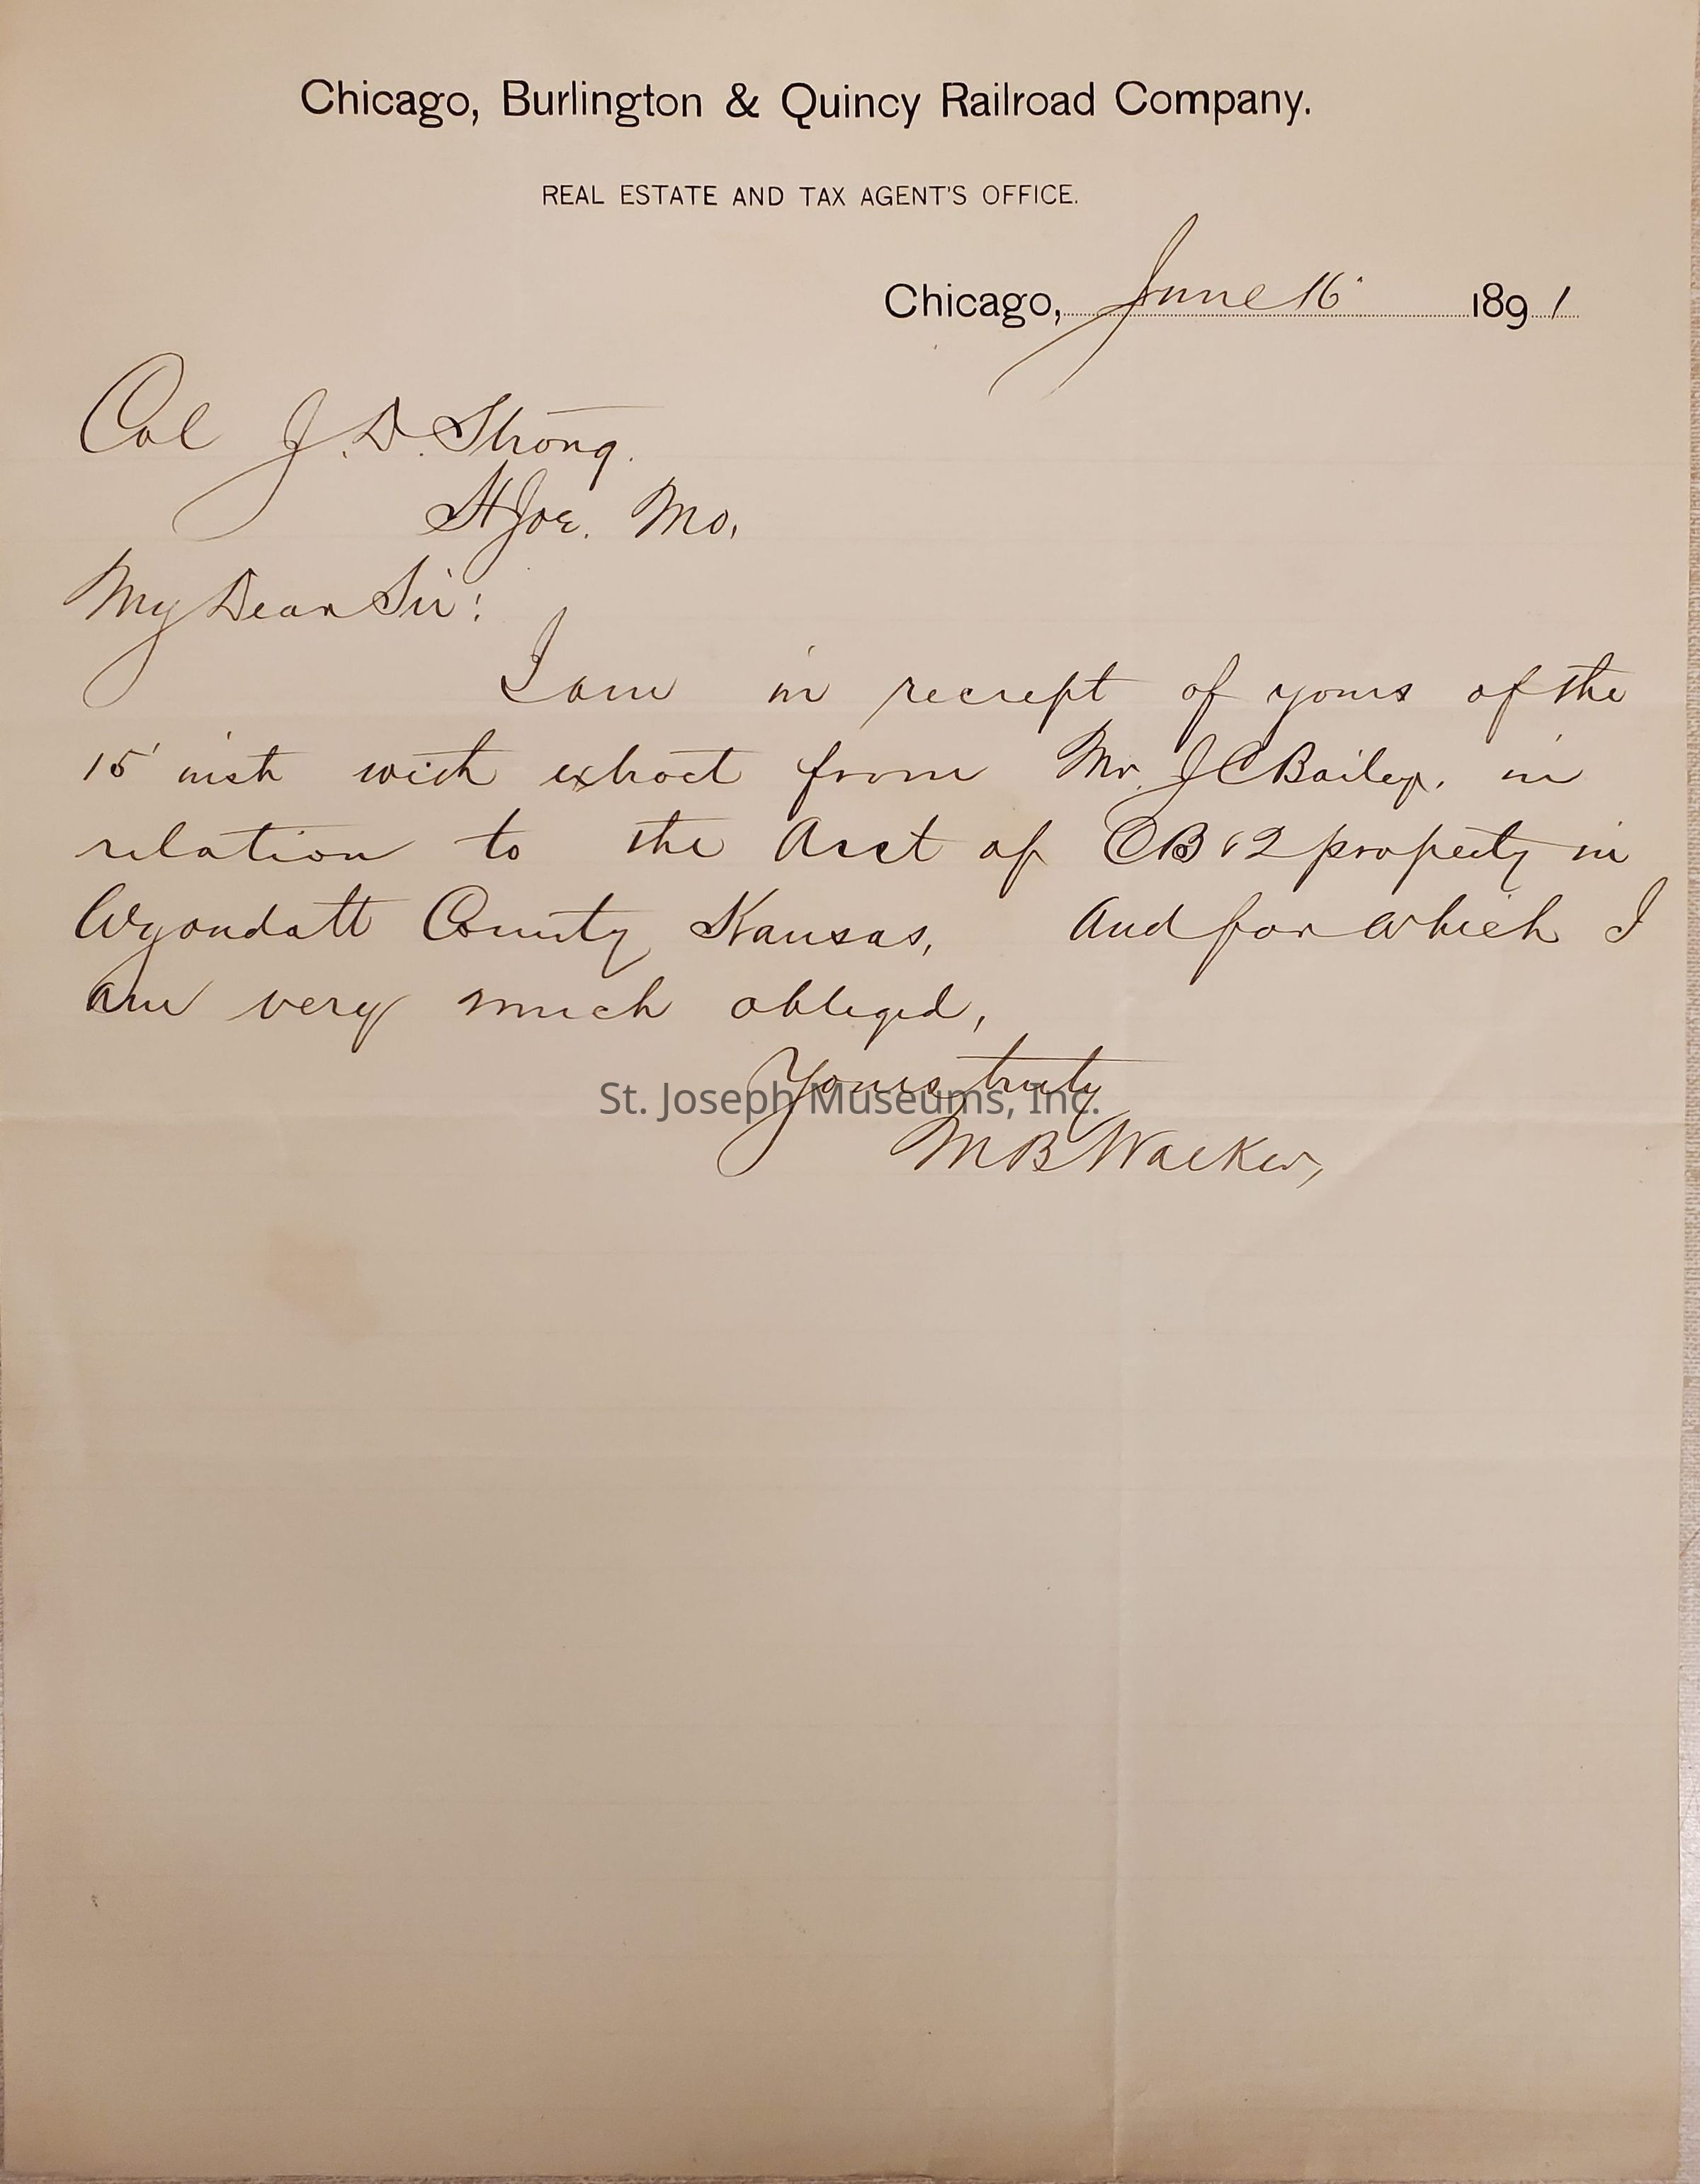 Chicago, Burlington & Quincy Railroad Company.
REAL ESTATE AND TAX AGENT'S OFFICE.
Chicago, June 16 1891
Col J. D. Strong.
St Joe. Mo,
My Dear Sir:
I am in reciept of yours of the
15 inst with extract from Mr. J C Bailey. in
relation to the Asst of CB & Q property in
Wyondatt County Kansas, And for which I
am very much obliged,
Yours truly
St. Joseph Museums, Inc.
M B Walker,